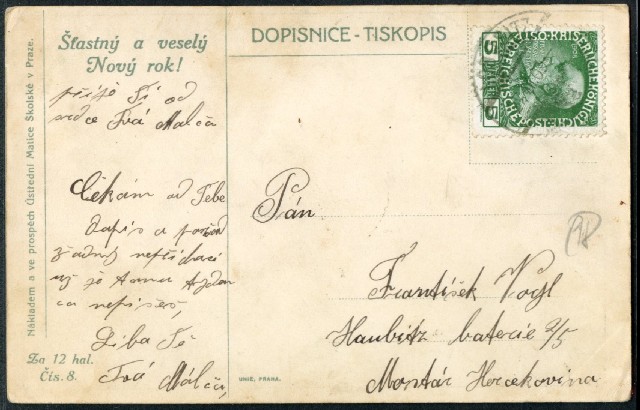 Šťastný a veselý
Nový rok!
přeje Ti od
srdce Tvá Malča
Čekám od Tebe
Dopis a pořád
žádný nepřichází
už je
nepíšeš,
Líbá Tě
Tvá Málča,
Za 12 hal.
Čís. 8.
Nákladem a ve prospěch Ústřední Matice Školské v Praze.
DOPISNICE - TISKOPIS
5
5
Pán
František Vogl
Haubitz baterie 2/5
Mostár Hercekovina
UNIE, PRAHA.